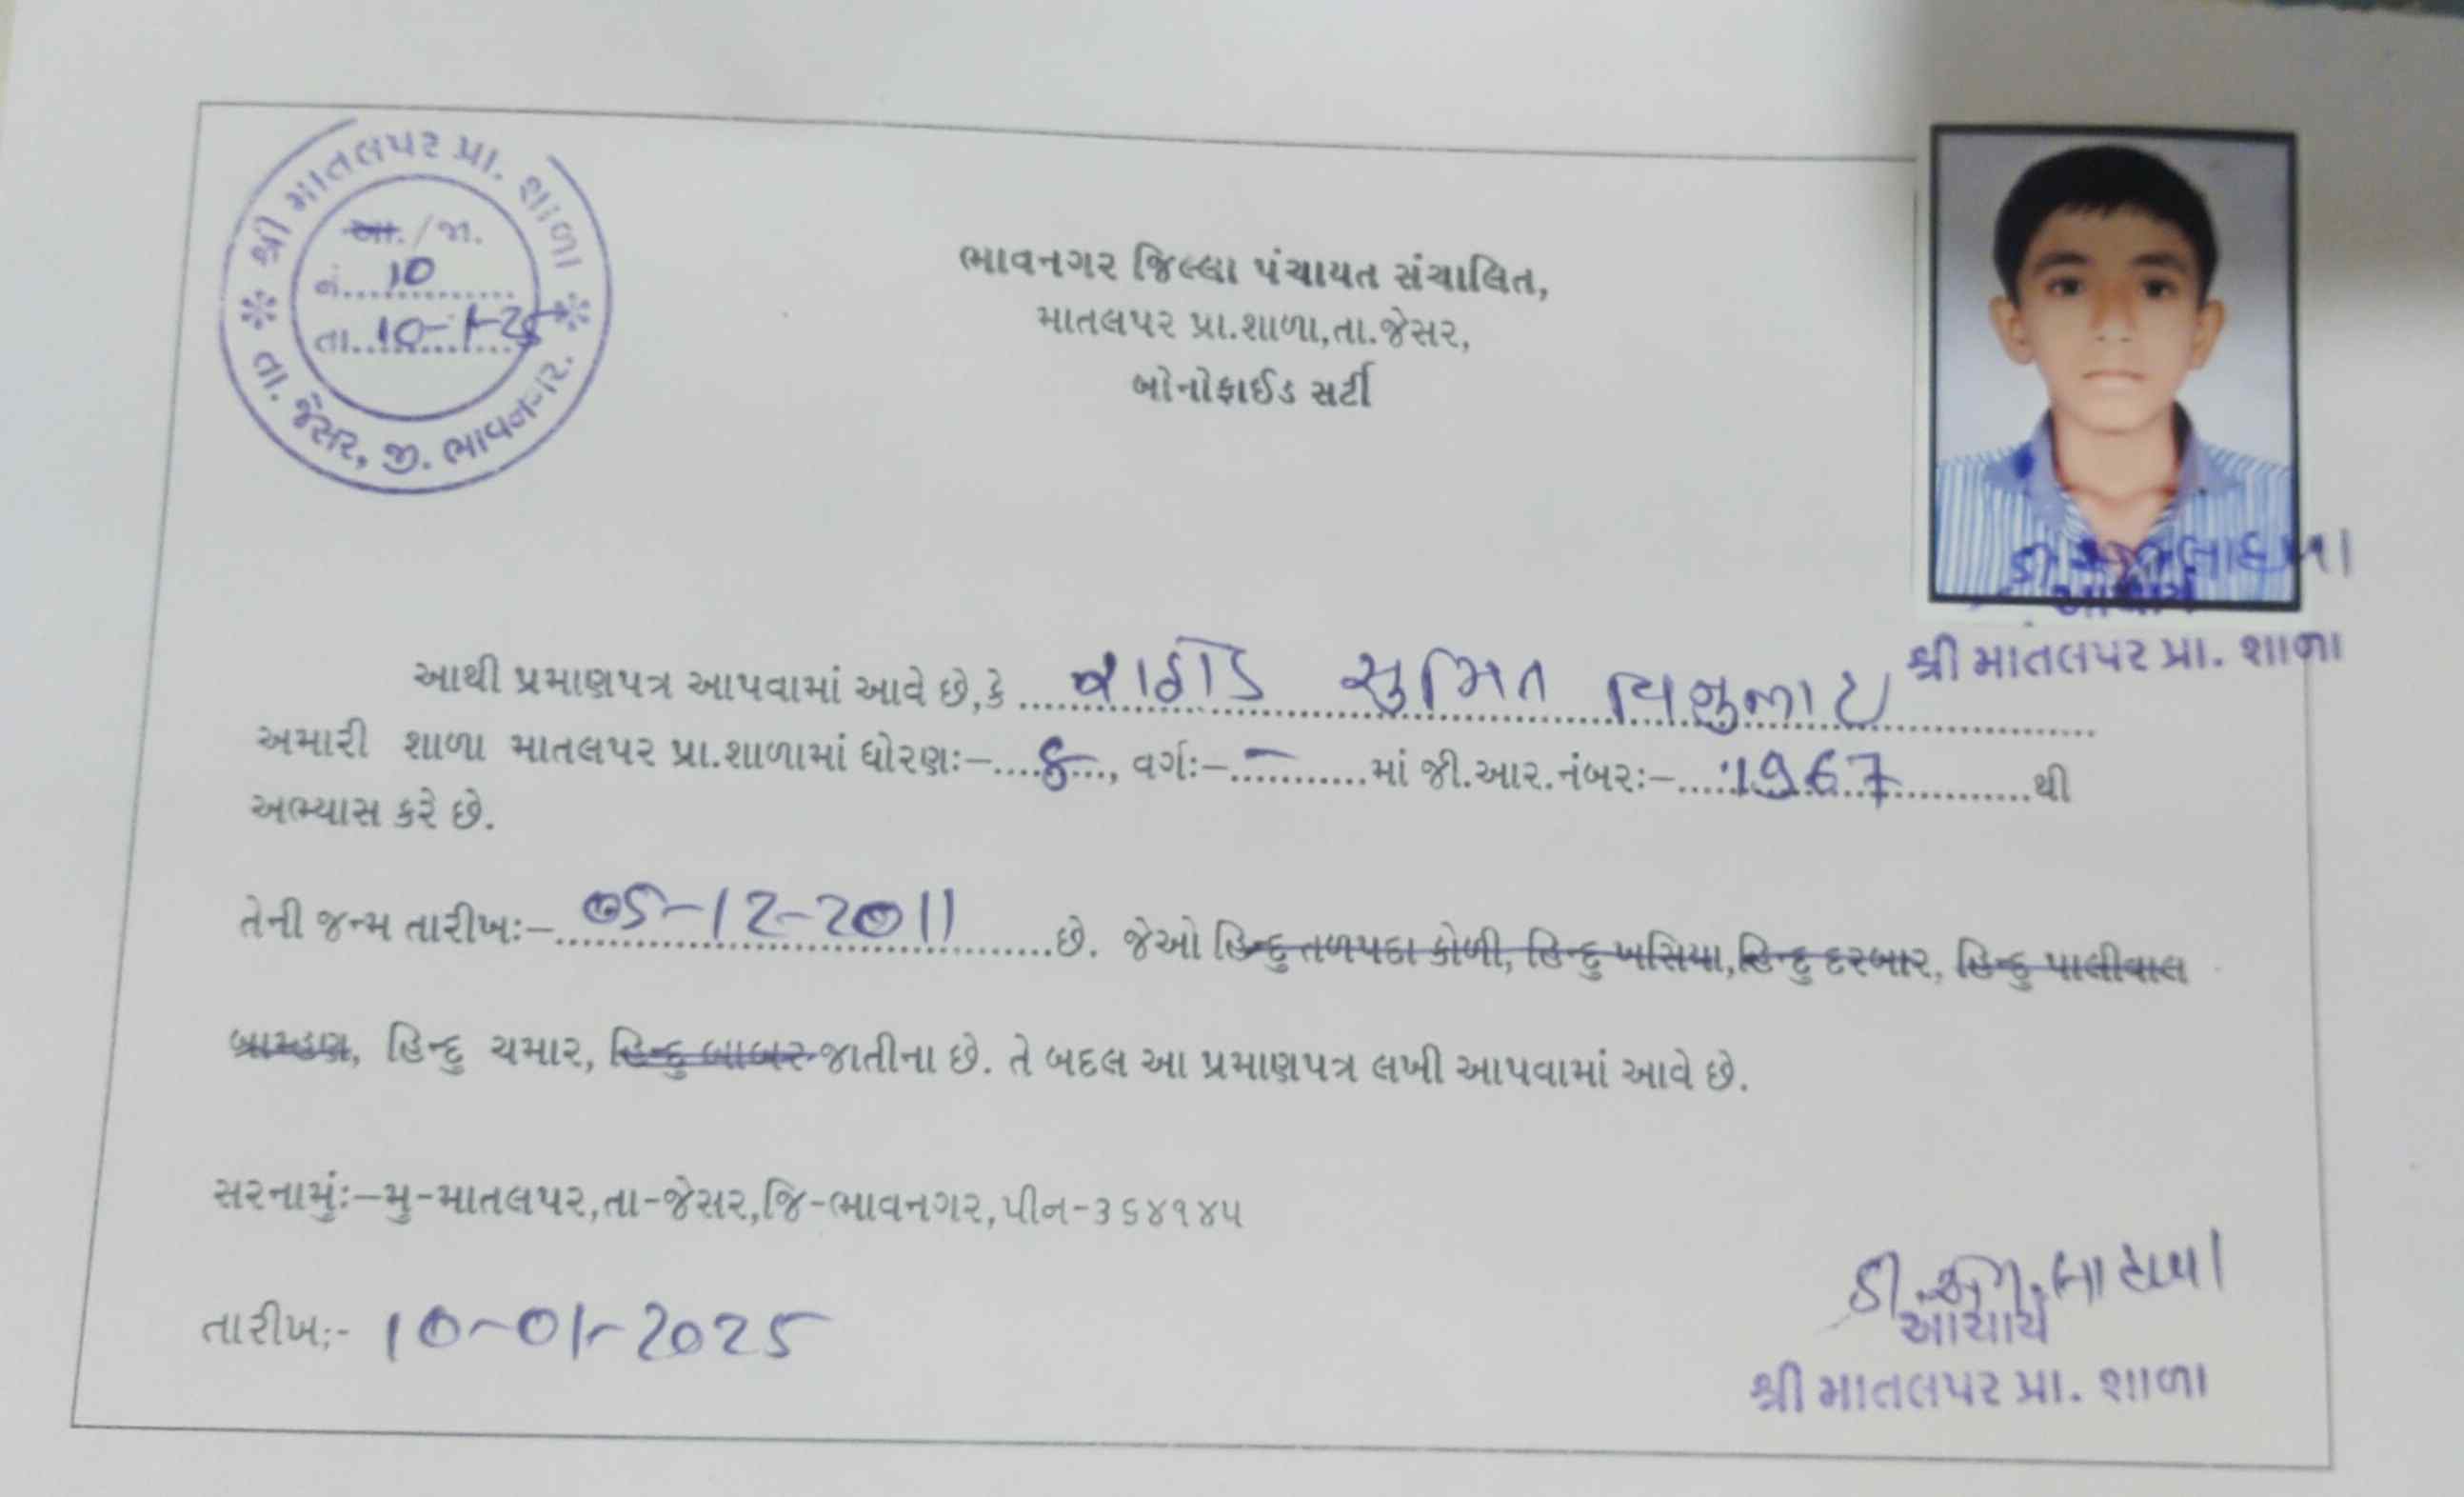 શ્રી માતલપર પ્રા. શાળા
આ. / જા.
નં. 10
તા. 10-1-25
તા. જેસર, જી. ભાવનગર.
ભાવનગર જિલ્લા પંચાયત સંચાલિત,
માતલપર પ્રા.શાળા,તા.જેસર,
બોનોફાઈડ સર્ટી
આચાર્ય
શ્રી માતલપર પ્રા. શાળા
આથી પ્રમાણપત્ર આપવામાં આવે છે,કે રાઠોડ સુમિત
અમારી શાળા માતલપર પ્રા.શાળામાં ધોરણઃ–....8...., વર્ગઃ–....–....માં જી.આર.નંબરઃ–....1967....થી
અભ્યાસ કરે છે.
તેની જન્મ તારીખઃ–....05-12-2011....છે. જેઓ હિન્દુ તળપદા કોળી, હિન્દુ ખસિયા,હિન્દુ દરબાર, હિન્દુ પાલીવાલ
બ્રામ્હણ, હિન્દુ ચમાર, હિન્દુ બાબર જાતીના છે. તે બદલ આ પ્રમાણપત્ર લખી આપવામાં આવે છે.
સરનામુંઃ–મુ-માતલપર,તા-જેસર,જિ-ભાવનગર,પીન-૩૬૪૧૪૫
તારીખઃ- 10-01-2025
આચાર્ય
શ્રી માતલપર પ્રા. શાળા